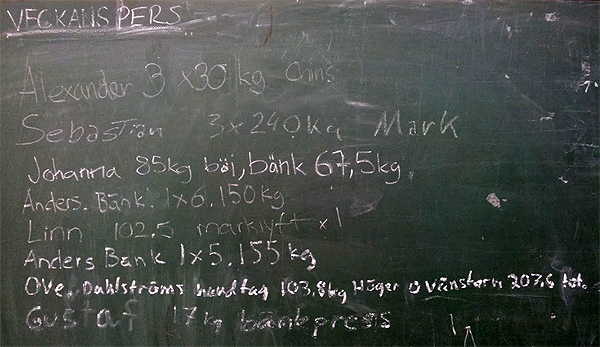 VECKANS PERS
Alexander 3 x30 kg Chins
Sebastian 3x240kg Mark
Johanna 85kg böj, bänk 67,5kg
Anders. Bänk. 1x6.150kg
Linn 102.5 marklyft x1
Anders Bänk 1x5.155 kg
Ove, Dahlströms handtag 103,8kg Höger o vänstern 207,6 tot.
Gustaf 17kg bänkpress